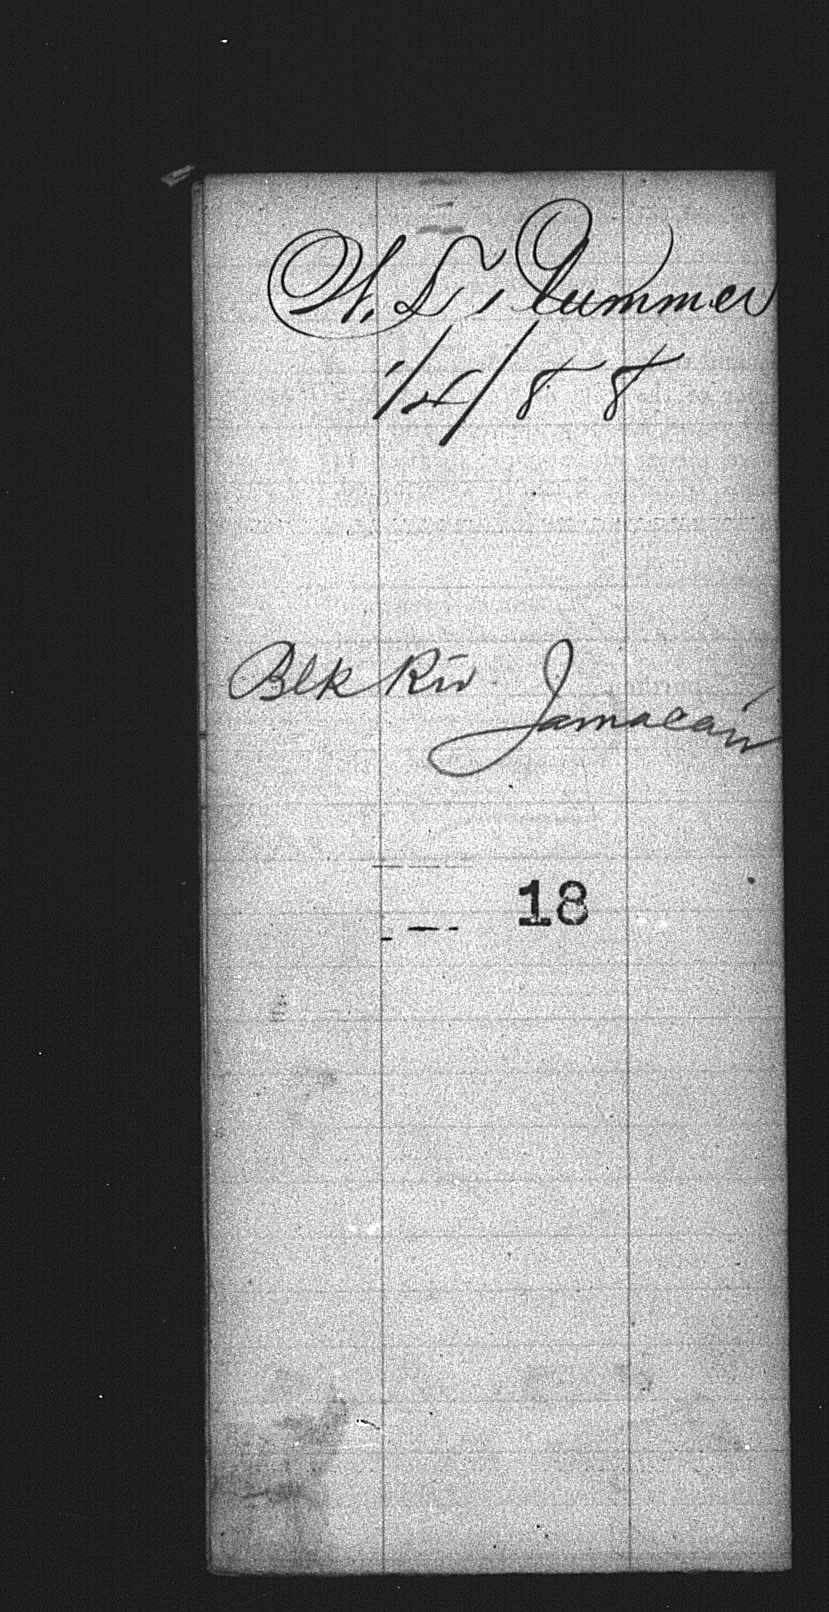 W. L. Plummer
1/4/88
Blk Riv
Jamacain
18